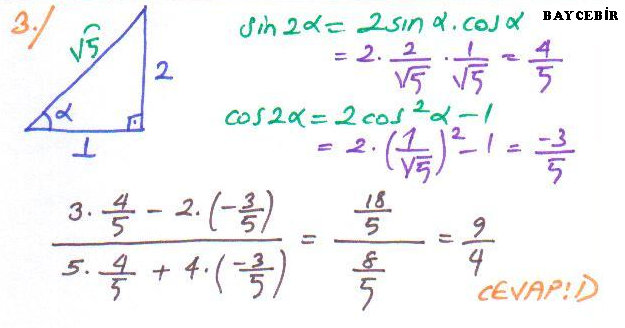 BAYCEBİR
3./
√5
2
α
1
sin2α = 2sinα.cosα
= 2. 2/√5 . 1/√5 = 4/5
cos2α = 2cos²α - 1
= 2.(1/√5)² - 1 = -3/5
(3. 4/5 - 2.(-3/5)) / (5. 4/5 + 4.(-3/5)) = (18/5) / (8/5) = 9/4
CEVAP:D